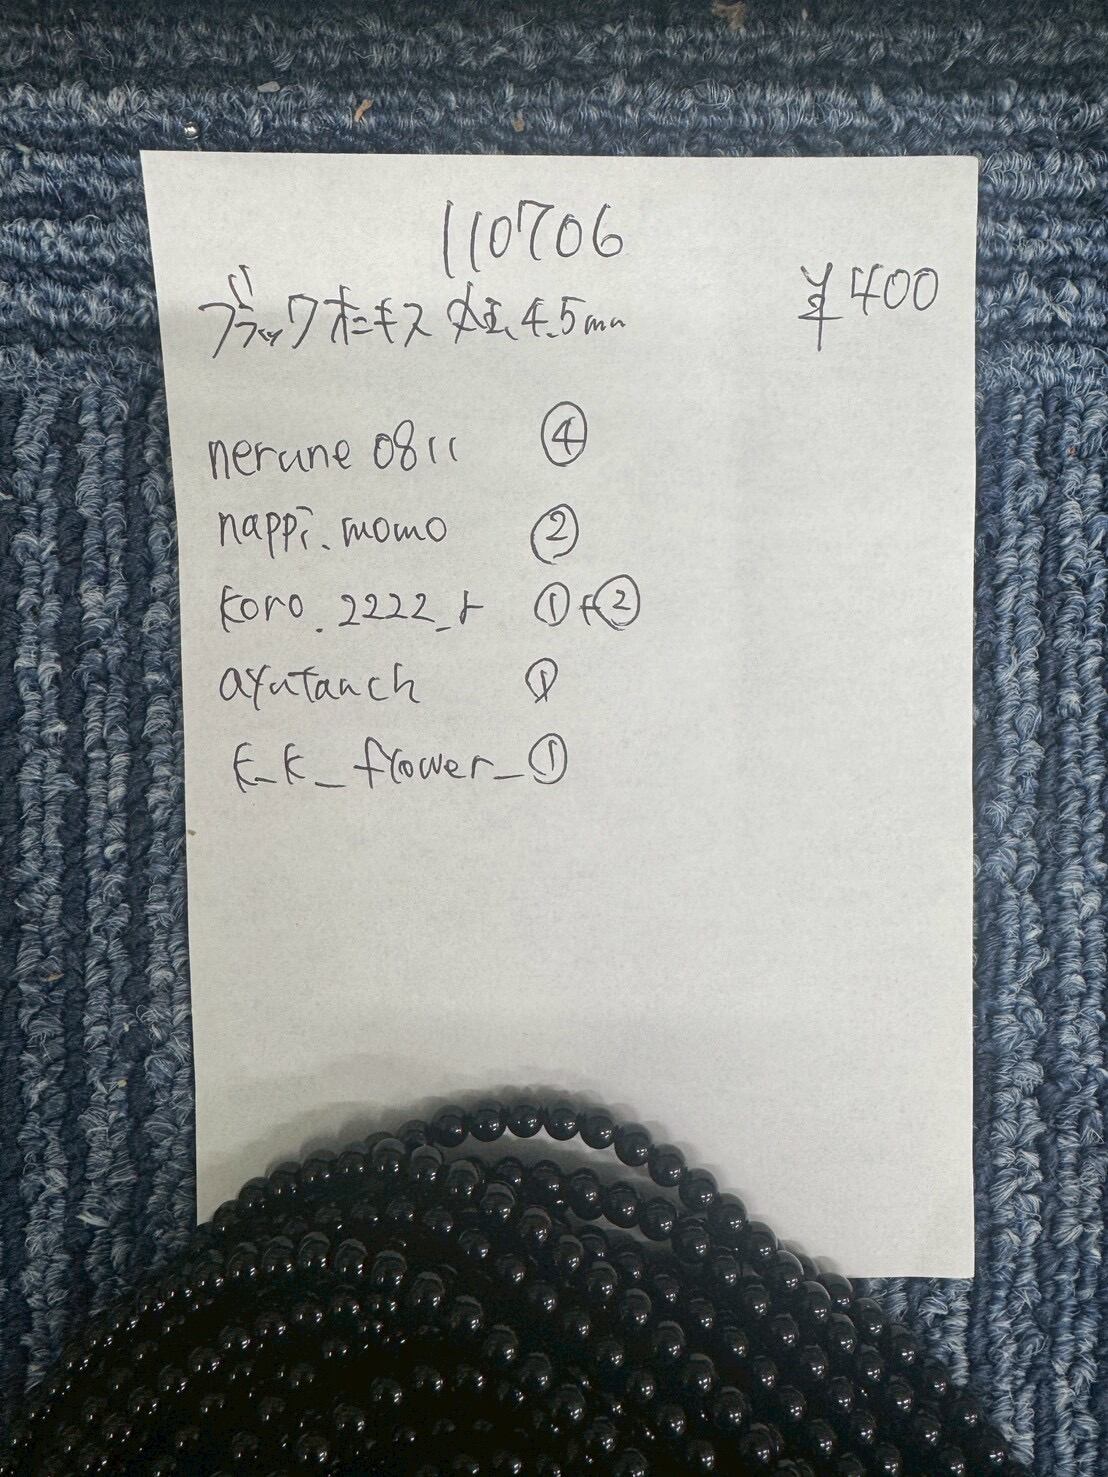 110706
¥400
ブラックオニキス 丸玉 4.5mm
nerune 0811 ④
nappi.momo ②
koro_2222_r ①+②
ayutanch ①
k_k_flower_ ①